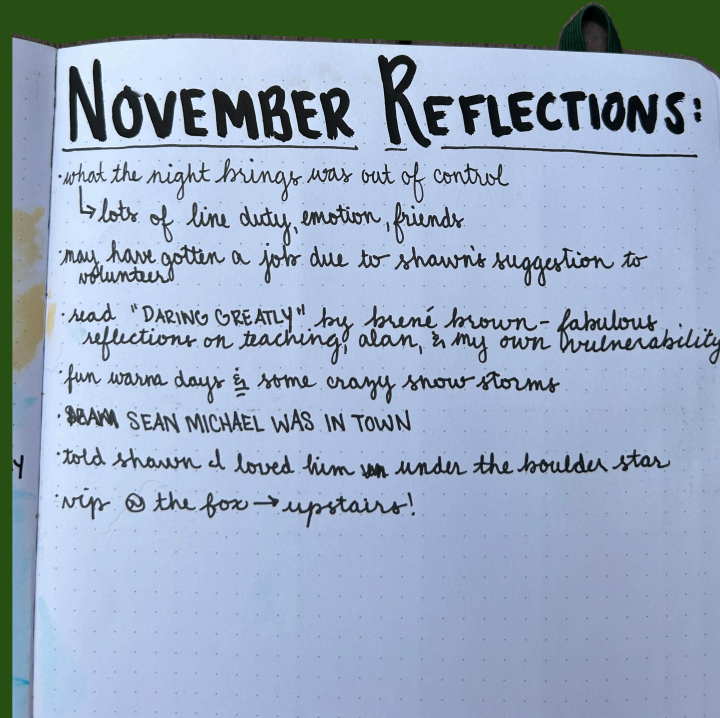 NOVEMBER REFLECTIONS:
·what the night brings was out of control
↳lots of line duty, emotion, friends
·may have gotten a job due to shawn's suggestion to
volunteer
·read "DARING GREATLY" by brené brown - fabulous
reflections on teaching, alan, & my own vulnerability
·fun warm days & some crazy snow storms
· SEAN MICHAEL WAS IN TOWN
·told shawn I loved him under the boulder star
·vip @ the fox → upstairs!
y